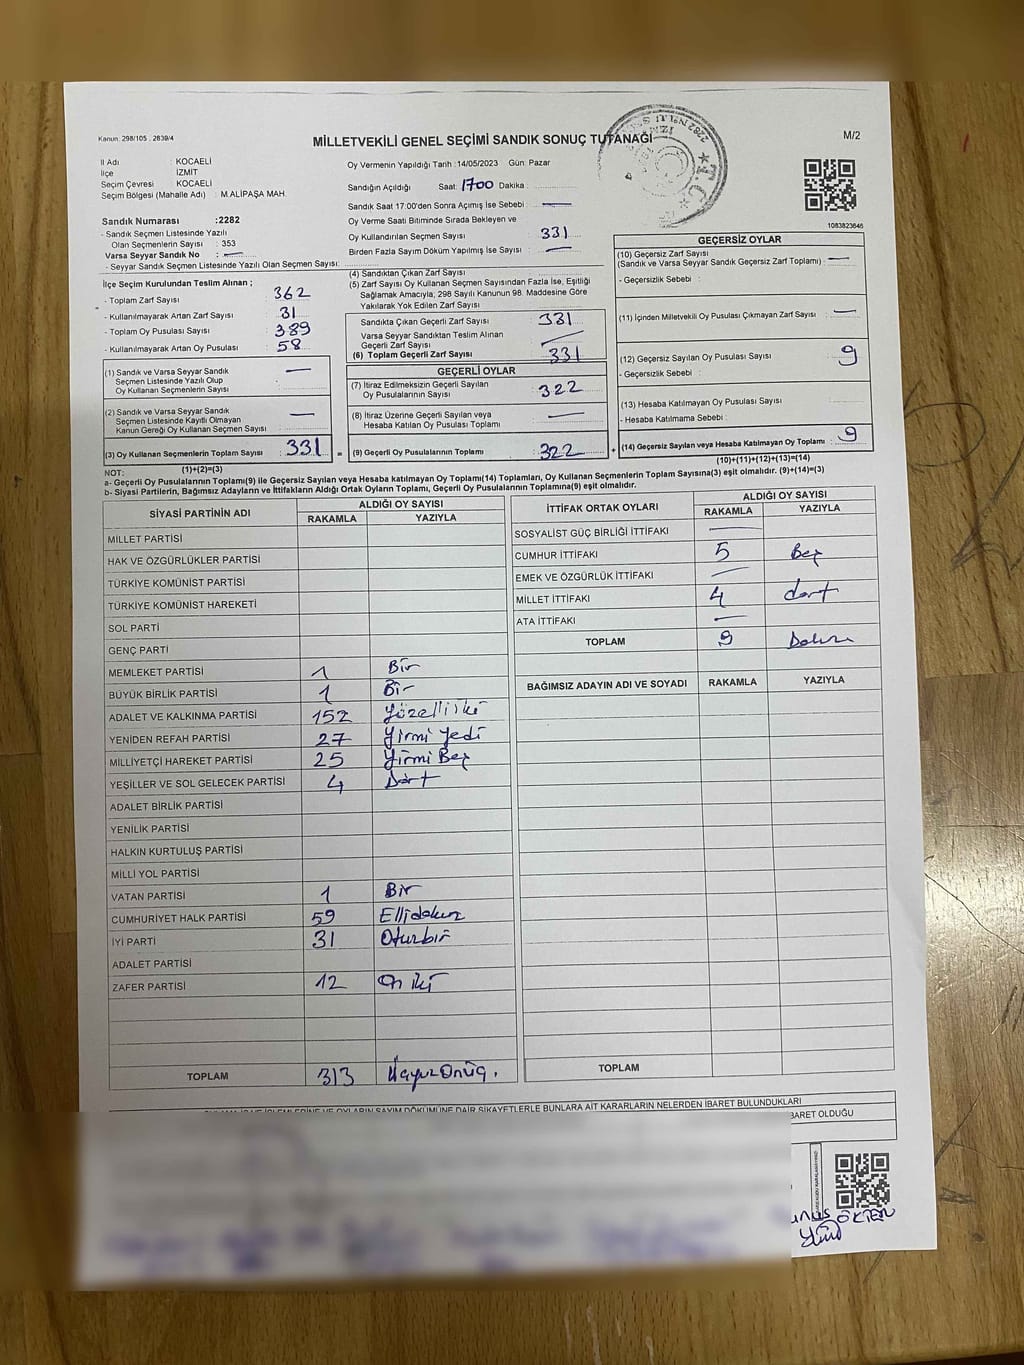 Kanun: 298/105 . 2839/4
MİLLETVEKİLİ GENEL SEÇİMİ SANDIK SONUÇ TUTANAĞI
M/2
İl Adı : KOCAELİ
İlçe : İZMİT
Seçim Çevresi : KOCAELİ
Seçim Bölgesi (Mahalle Adı) : M.ALİPAŞA MAH.
Oy Vermenin Yapıldığı Tarih :14/05/2023 Gün: Pazar
Sandığın Açıldığı Saat: 1700 Dakika :
Sandık Saat 17:00'den Sonra Açımış İse Sebebi : —
Oy Verme Saati Bitiminde Sırada Bekleyen ve
Oy Kullandırılan Seçmen Sayısı : 331
Birden Fazla Sayım Döküm Yapılmış İse Sayısı : —
1083823646
Sandık Numarası :2282
- Sandık Seçmen Listesinde Yazılı
Olan Seçmenlerin Sayısı : 353
Varsa Seyyar Sandık No : —
- Seyyar Sandık Seçmen Listesinde Yazılı Olan Seçmen Sayısı:
İlçe Seçim Kurulundan Teslim Alınan ;
- Toplam Zarf Sayısı : 362
- Kullanılmayarak Artan Zarf Sayısı : 31
- Toplam Oy Pusulası Sayısı : 389
- Kullanılmayarak Artan Oy Pusulası : 58
(1) Sandık ve Varsa Seyyar Sandık
Seçmen Listesinde Yazılı Olup
Oy Kullanan Seçmenlerin Sayısı : —
(2) Sandık ve Varsa Seyyar Sandık
Seçmen Listesinde Kayıtlı Olmayan
Kanun Gereği Oy Kullanan Seçmen Sayısı : —
(3) Oy Kullanan Seçmenlerin Toplam Sayısı : 331
(4) Sandıktan Çıkan Zarf Sayısı :
(5) Zarf Sayısı Oy Kullanan Seçmen Sayısından Fazla İse, Eşitliği
Sağlamak Amacıyla, 298 Sayılı Kanunun 98. Maddesine Göre
Yakılarak Yok Edilen Zarf Sayısı :
Sandıkta Çıkan Geçerli Zarf Sayısı : 331
Varsa Seyyar Sandıktan Teslim Alınan
Geçerli Zarf Sayısı :
(6) Toplam Geçerli Zarf Sayısı : 331
GEÇERLİ OYLAR
(7) İtiraz Edilmeksizin Geçerli Sayılan
Oy Pusulalarının Sayısı : 322
(8) İtiraz Üzerine Geçerli Sayılan veya
Hesaba Katılan Oy Pusulası Toplamı : —
= (9) Geçerli Oy Pusulalarının Toplamı : 322
GEÇERSİZ OYLAR
(10) Geçersiz Zarf Sayısı
(Sandık ve Varsa Seyyar Sandık Geçersiz Zarf Toplamı) : —
- Geçersizlik Sebebi :
(11) İçinden Milletvekili Oy Pusulası Çıkmayan Zarf Sayısı : —
(12) Geçersiz Sayılan Oy Pusulası Sayısı : 9
- Geçersizlik Sebebi :
(13) Hesaba Katılmayan Oy Pusulası Sayısı :
- Hesaba Katılmama Sebebi :
+ (14) Geçersiz Sayılan veya Hesaba Katılmayan Oy Toplamı : 9
NOT: (1)+(2)=(3)
(10)+(11)+(12)+(13)=(14)
a- Geçerli Oy Pusulalarının Toplamı(9) ile Geçersiz Sayılan veya Hesaba katılmayan Oy Toplamı(14) Toplamları, Oy Kullanan Seçmenlerin Toplam Sayısına(3) eşit olmalıdır. (9)+(14)=(3)
b- Siyasi Partilerin, Bağımsız Adayların ve İttifakların Aldığı Ortak Oyların Toplamı, Geçerli Oy Pusulalarının Toplamına(9) eşit olmalıdır.
SİYASİ PARTİNİN ADI
ALDIĞI OY SAYISI
RAKAMLA YAZIYLA
MİLLET PARTİSİ
HAK VE ÖZGÜRLÜKLER PARTİSİ
TÜRKİYE KOMÜNİST PARTİSİ
TÜRKİYE KOMÜNİST HAREKETİ
SOL PARTİ
GENÇ PARTİ
MEMLEKET PARTİSİ 1 Bir
BÜYÜK BİRLİK PARTİSİ 1 Bir
ADALET VE KALKINMA PARTİSİ 152 Yüzelliiki
YENİDEN REFAH PARTİSİ 27 Yirmi Yedi
MİLLİYETÇİ HAREKET PARTİSİ 25 Yirmi Beş
YEŞİLLER VE SOL GELECEK PARTİSİ 4 Dört
ADALET BİRLİK PARTİSİ
YENİLİK PARTİSİ
HALKIN KURTULUŞ PARTİSİ
MİLLİ YOL PARTİSİ
VATAN PARTİSİ 1 Bir
CUMHURİYET HALK PARTİSİ 59 Ellidokuz
İYİ PARTİ 31 Oturbir
ADALET PARTİSİ
ZAFER PARTİSİ 12 On iki
TOPLAM 313 Üçyüz Onüç.
İTTİFAK ORTAK OYLARI
ALDIĞI OY SAYISI
RAKAMLA YAZIYLA
SOSYALİST GÜÇ BİRLİĞİ İTTİFAKI —
CUMHUR İTTİFAKI 5 Beş
EMEK VE ÖZGÜRLÜK İTTİFAKI —
MİLLET İTTİFAKI 4 dört
ATA İTTİFAKI —
TOPLAM 9 Dokuz
BAĞIMSIZ ADAYIN ADI VE SOYADI RAKAMLA YAZIYLA
TOPLAM
DÖKÜMÜNE DAİR ŞİKAYETLERLE BUNLARA AİT KARARLARIN NELERDEN İBARET BULUNDUKLARI
BARET OLDUĞU
ÖKTEN